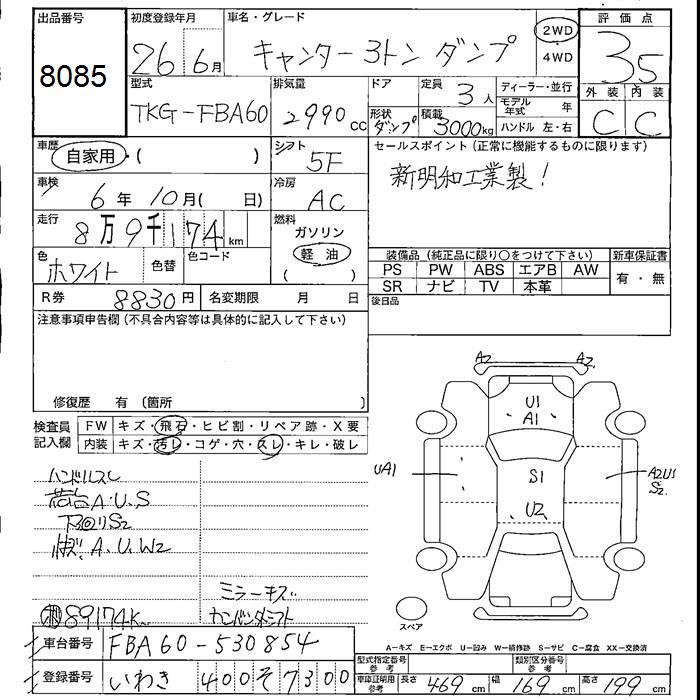 出品番号
8085
初度登録年月
26 6月
車名・グレード
キャンター 3トン ダンプ
2WD
4WD
評価点
3.5
外装 内装
C C
型式
TKG-FBA60
排気量
2990 cc
ドア
形状
ダンプ
定員
3 人
積載
3000kg
ディーラー・並行
モデル年式 年
ハンドル 左・右
車歴
自家用・( )
シフト
5F
セールスポイント(正常に機能するものに限ります)
新明和工業製!
車検
6年 10月( 日)
冷房
AC
走行
8万9千174 km
燃料
ガソリン
軽油
色
ホワイト
色替
色コード
装備品(純正品に限り○をつけて下さい)
新車保証書
PS PW ABS エアB AW
SR ナビ TV 本革
有・無
R券
8830円
名変期限 月 日
後日品
注意事項申告欄(不具合内容等は具体的に記入して下さい)
修復歴 有(箇所
検査員
記入欄
FW キズ・飛石・ヒビ割・リペア跡・X要
内装 キズ・汚レ・コゲ・穴・スレ・キレ・破レ
ハンドルスレ
荷台A・U・S
下回りS2
A.U.W2
ミラーキズ
89174K
A2 A2
U1
A1
UA1
S1
A2U1
S2
U2
スペア
A-キズ E-エクボ U-凹み W-補修跡 S-サビ C-腐食 XX-交換済
車台番号
FBA60-530854
登録番号
いわき 400 そ 7300
型式指定番号
参考
類別区分番号
参考
車庫証明用
参考
長さ 469 cm
幅 169 cm
高さ 199 cm